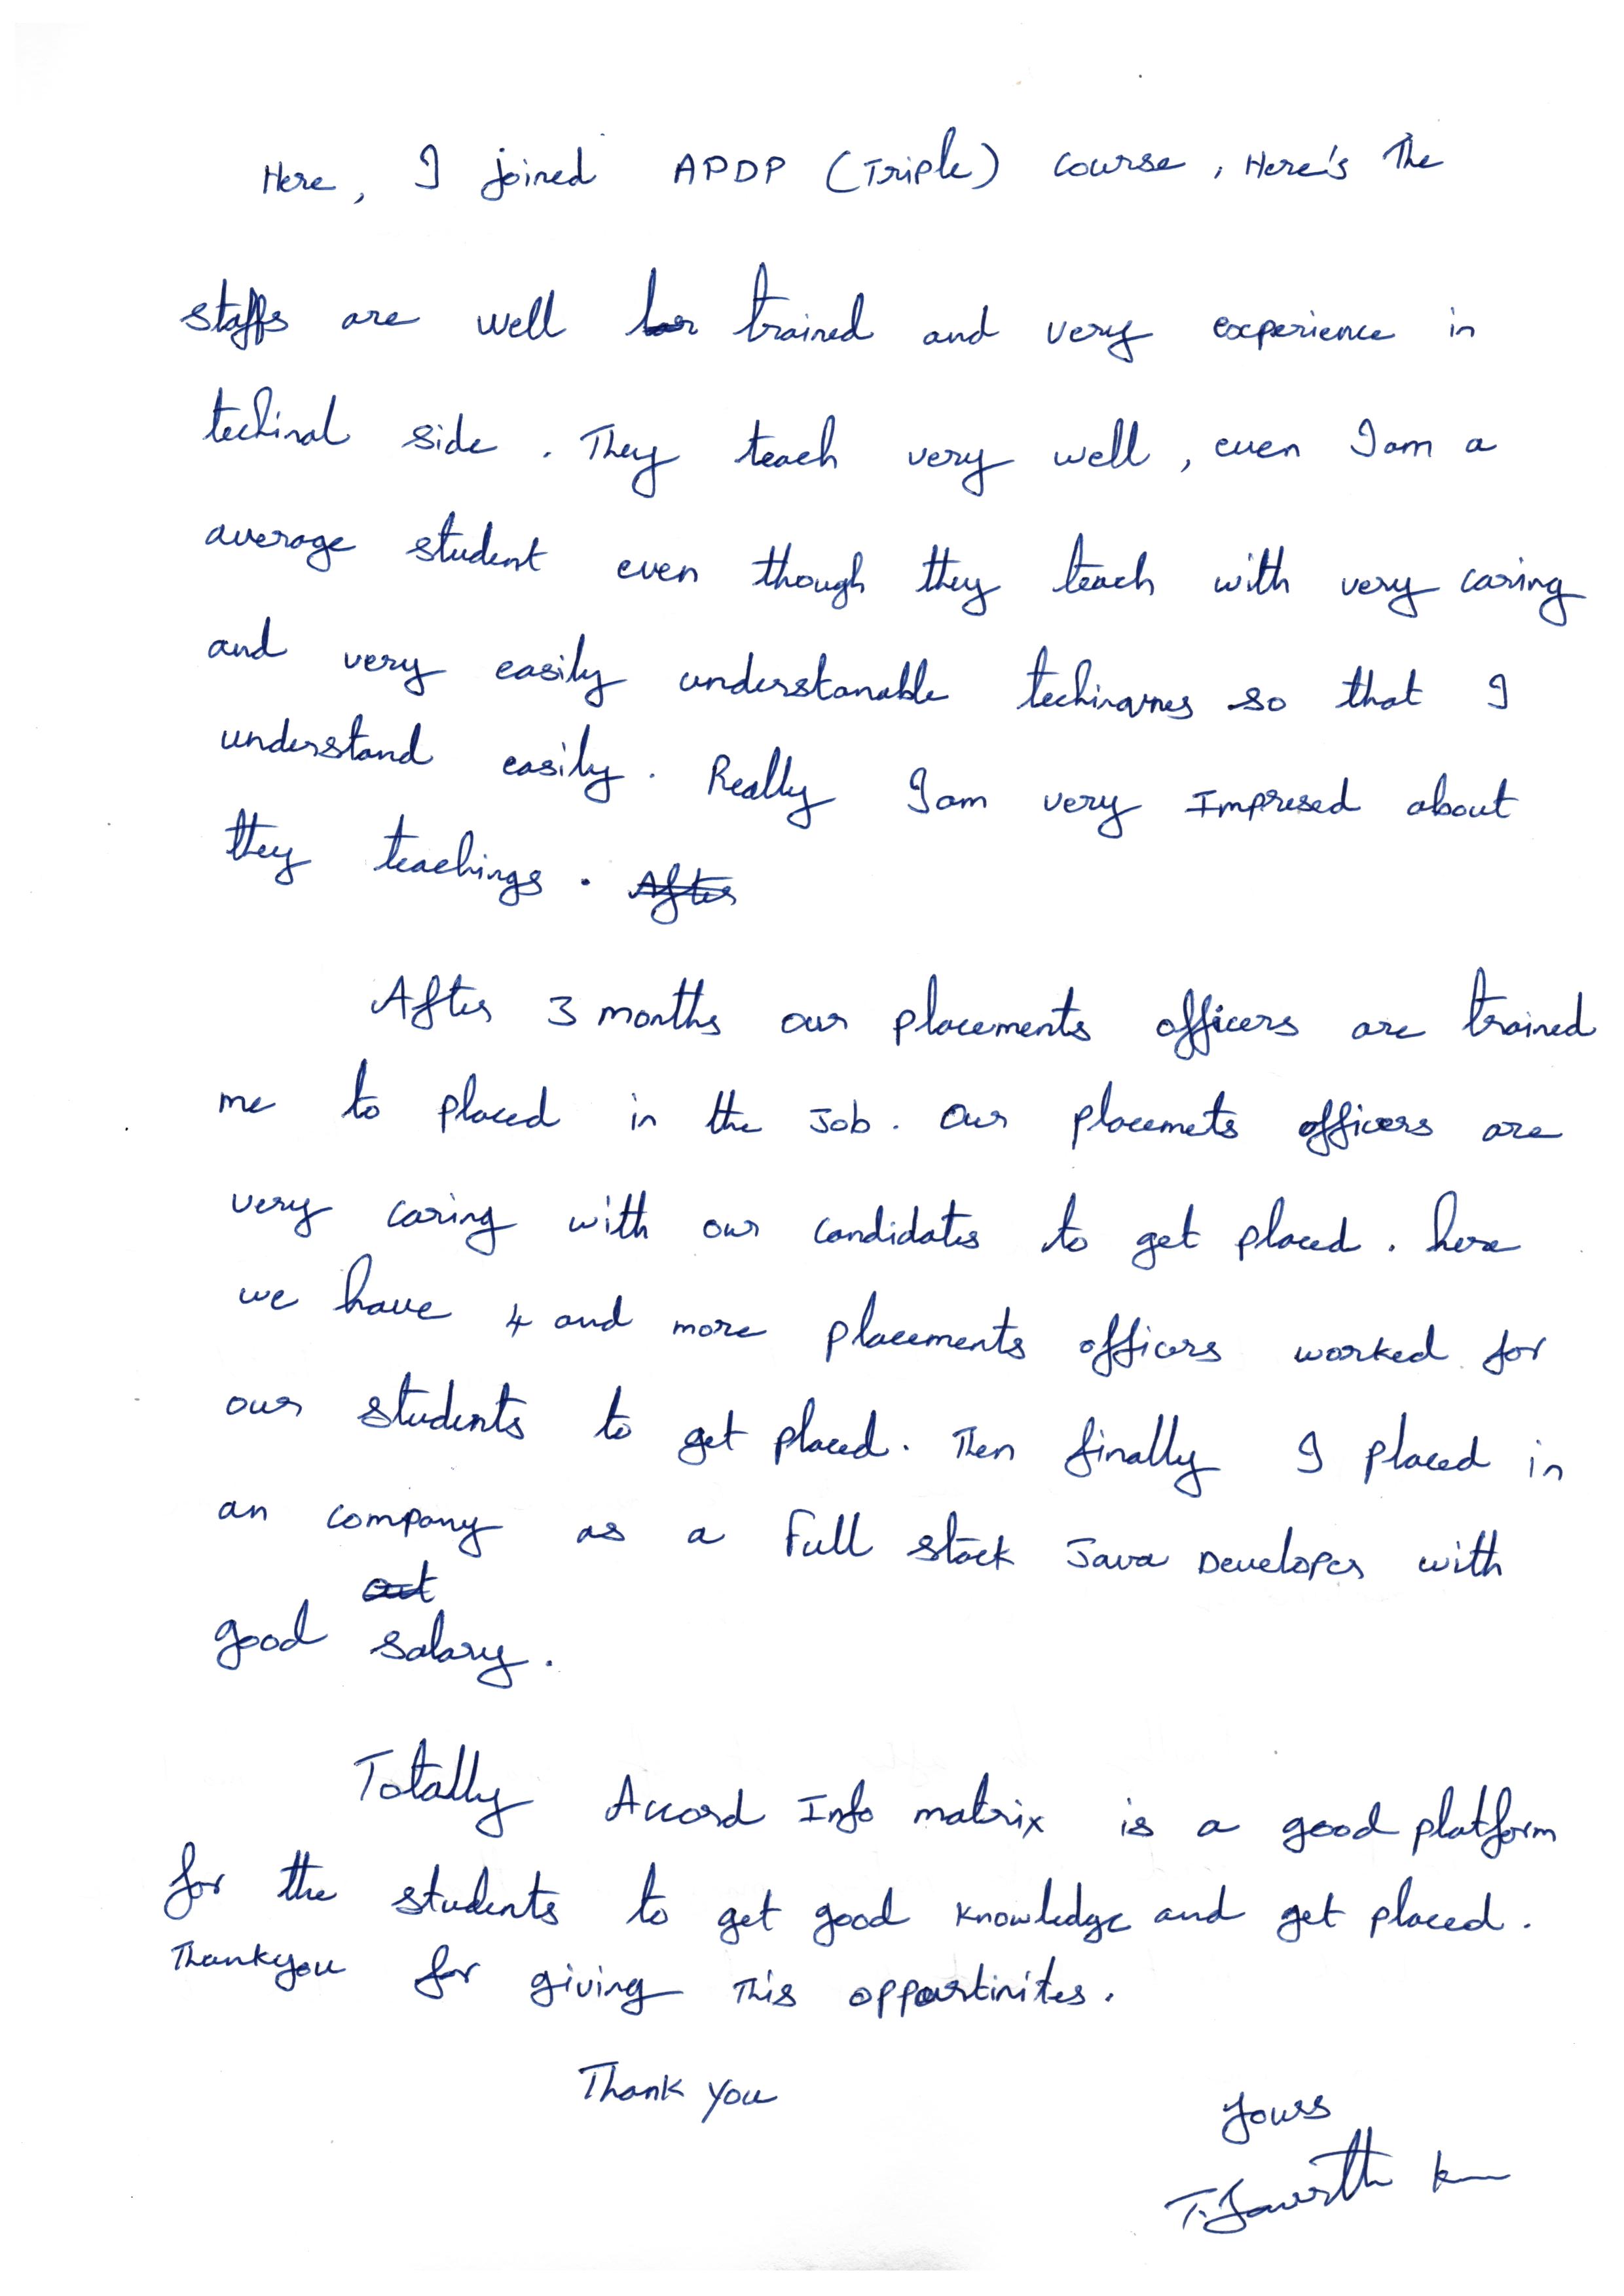 Here, I joined APDP (Triple) course, Here's The
staffs are well trained and very experience in
techinal side. They teach very well, even I am a
average student even though they teach with very caring
and very easily understanable techinques so that I
understand easily. Really I am very Impresed about
they teachings. After
After 3 months our placements officers are trained
me to placed in the Job. Our placemets officers are
very caring with our candidates to get placed. here
we have 4 and more placements officers worked for
our students to get placed. Then finally I placed in
an company as a Full stack Java Developer with
out
good salary.
Totally Accord Info matrix is a good platform
for the students to get good knowledge and get placed.
Thankyou for giving This oppartinites.
Thank you
Yours